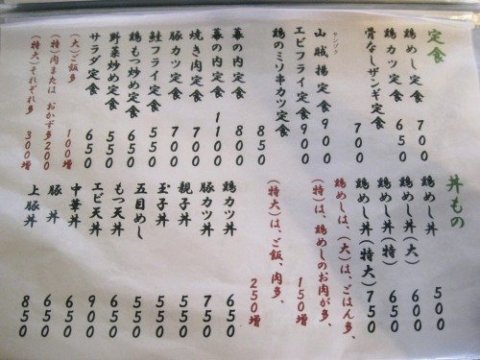 定食
鶏めし定食 700
鶏カツ定食 650
骨なしザンギ定食 700
山賊揚定食 900
エビフライ定食 900
鶏のミソ串カツ定食 850
幕の内定食 800
幕の内定食 1100
焼き肉定食 700
豚カツ定食 700
鮭フライ定食 550
鶏もつ炒め定食 550
野菜炒め定食 650
サラダ定食 650
(大)ご飯多 100増
(特)肉または おかず多200
(特大)それぞれ多 300増
丼もの
鶏めし丼 500
鶏めし丼(大) 600
鶏めし丼(特) 650
鶏めし丼(特大) 750
鶏めしは、(大)は、ごはん多、
(特)は、鶏めしのお肉が多、 150増
(特大)は、ご飯、肉多、 250増
鶏カツ丼 650
豚カツ丼 750
親子丼 550
玉子丼 550
五目めし 550
もつ天丼 650
エビ天丼 900
中華丼 650
豚丼 650
上豚丼 850